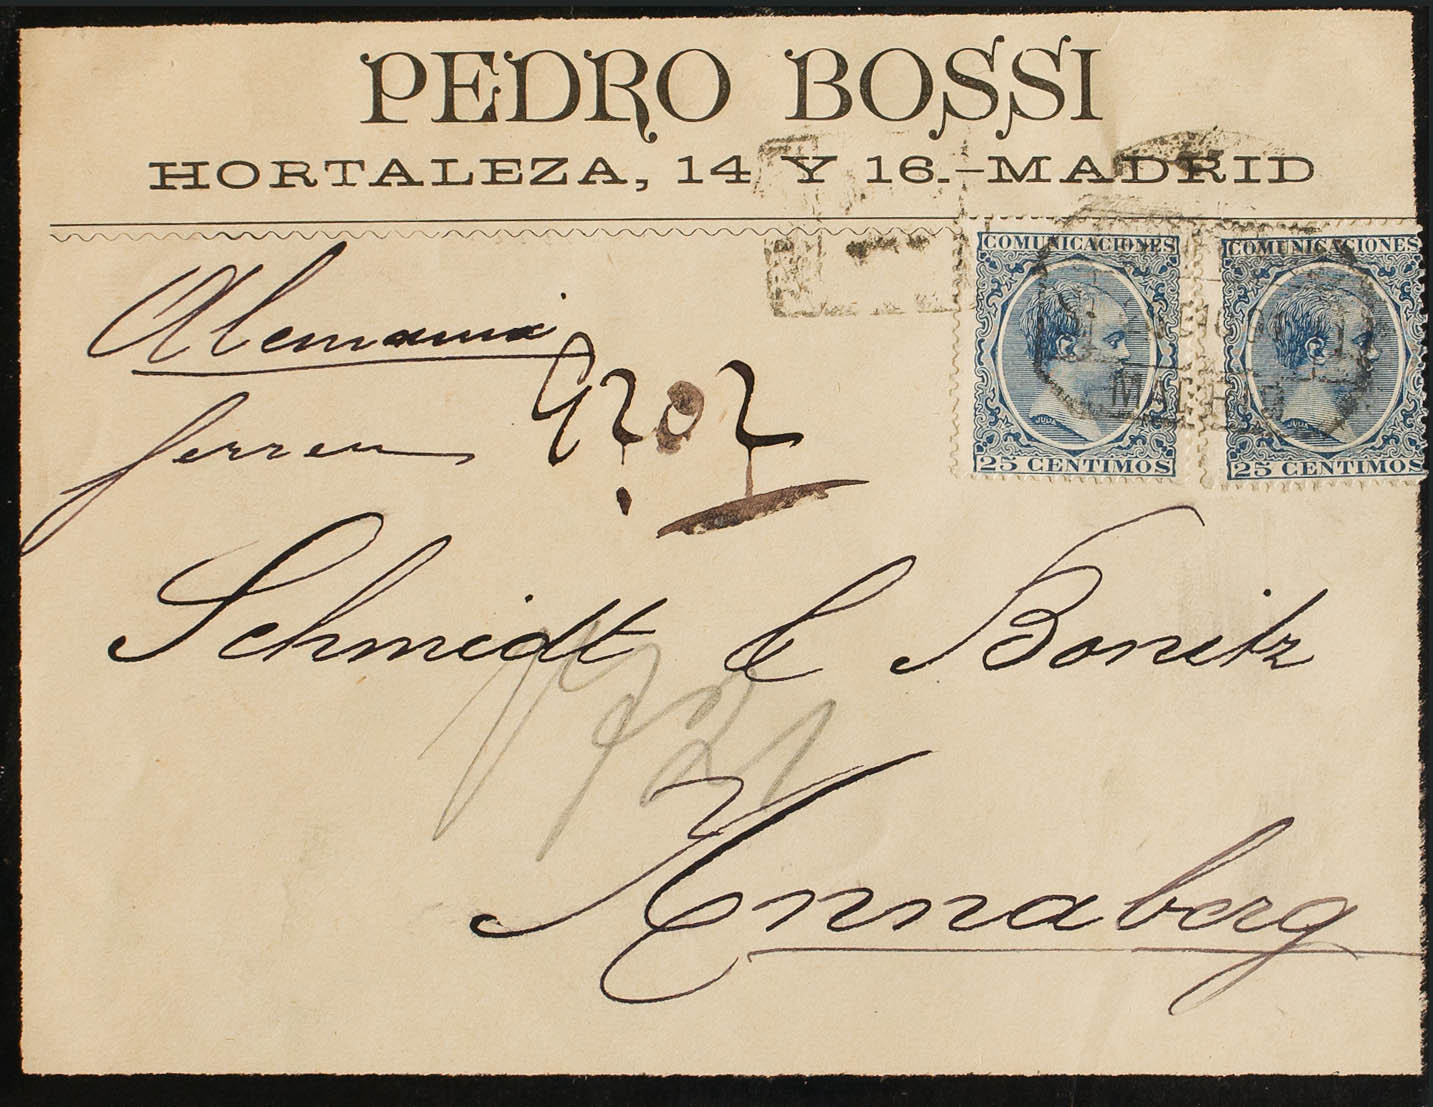 PEDRO BOSSI
HORTALEZA, 14 Y 16.-MADRID
COMUNICACIONES COMUNICACIONES
Alemania
Herren
25 CENTIMOS 25 CENTIMOS
MADRID
Schmidt & Bonitz
Annaberg